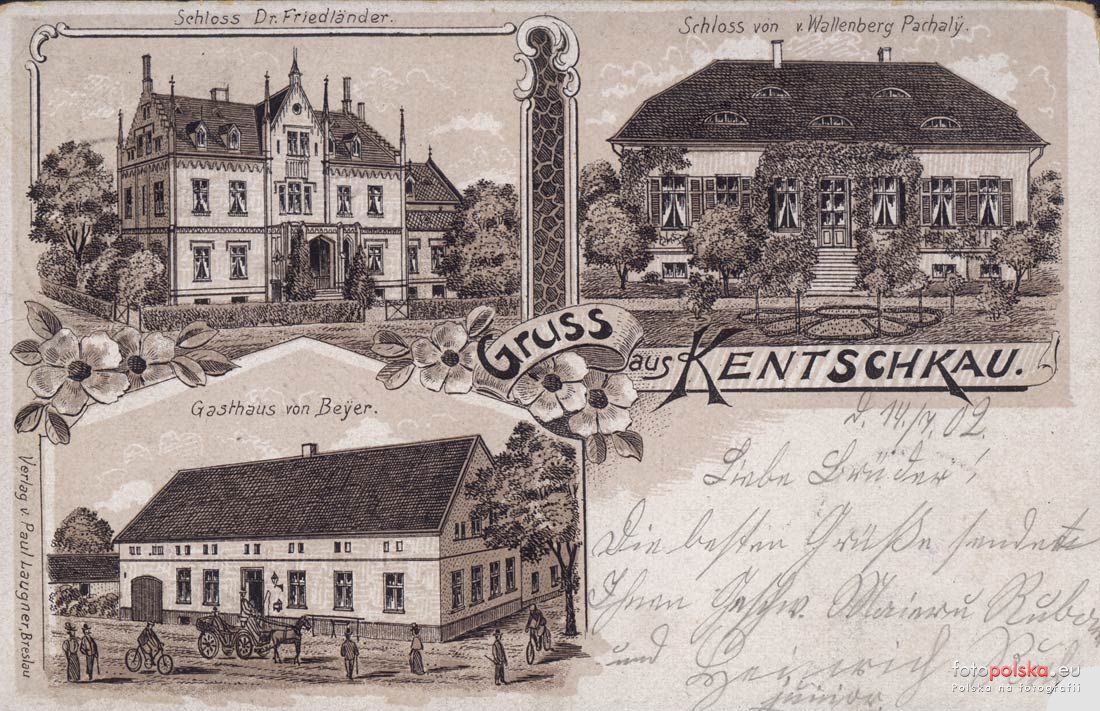 Schloss Dr. Friedländer.
Schloss von v. Wallenberg Pachalÿ.
Gruss
aus KENTSCHKAU.
Gasthaus von Beÿer.
Verlag v. Paul Laugner, Breslau
d. 14./7. 02.
Liebe Brüder!
Die besten Grüße sendet
Ihnen Geschw.
und Heinrich
junior.
fotopolska.eu
Polska na fotografii